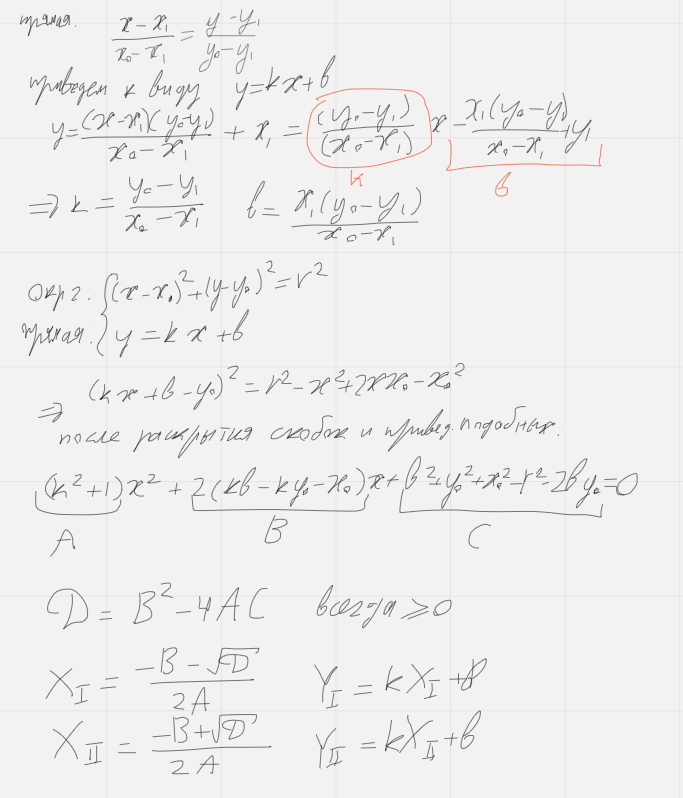 прямая. (x-x₁)/(x₀-x₁) = (y-y₁)/(y₀-y₁)
приведем к виду y=kx+b
y= (x-x₁)(y₀-y₁)/(x₀-x₁) + x₁ = (y₀-y₁)/(x₀-x₁) x - x₁(y₀-y₁)/(x₀-x₁) + y₁
k b
⇒ k = (y₀-y₁)/(x₀-x₁) b = x₁(y₀-y₁)/(x₀-x₁)
окр2: { (x-x₀)²+(y-y₀)²=r²
прямая: { y=kx+b
⇒ (kx+b-y₀)²=r²-x²+2xx₀-x₀²
после раскрытия скобок и привед. подобных:
(k²+1)x² + 2(kb-ky₀-x₀)x+b²+y₀²+x₀²-r²-2by₀=0
A B C
D = B²-4AC всегда ≥0
X_I = (-B-√D)/2A Y_I = kX_I+b
X_II = (-B+√D)/2A Y_II = kX_II+b